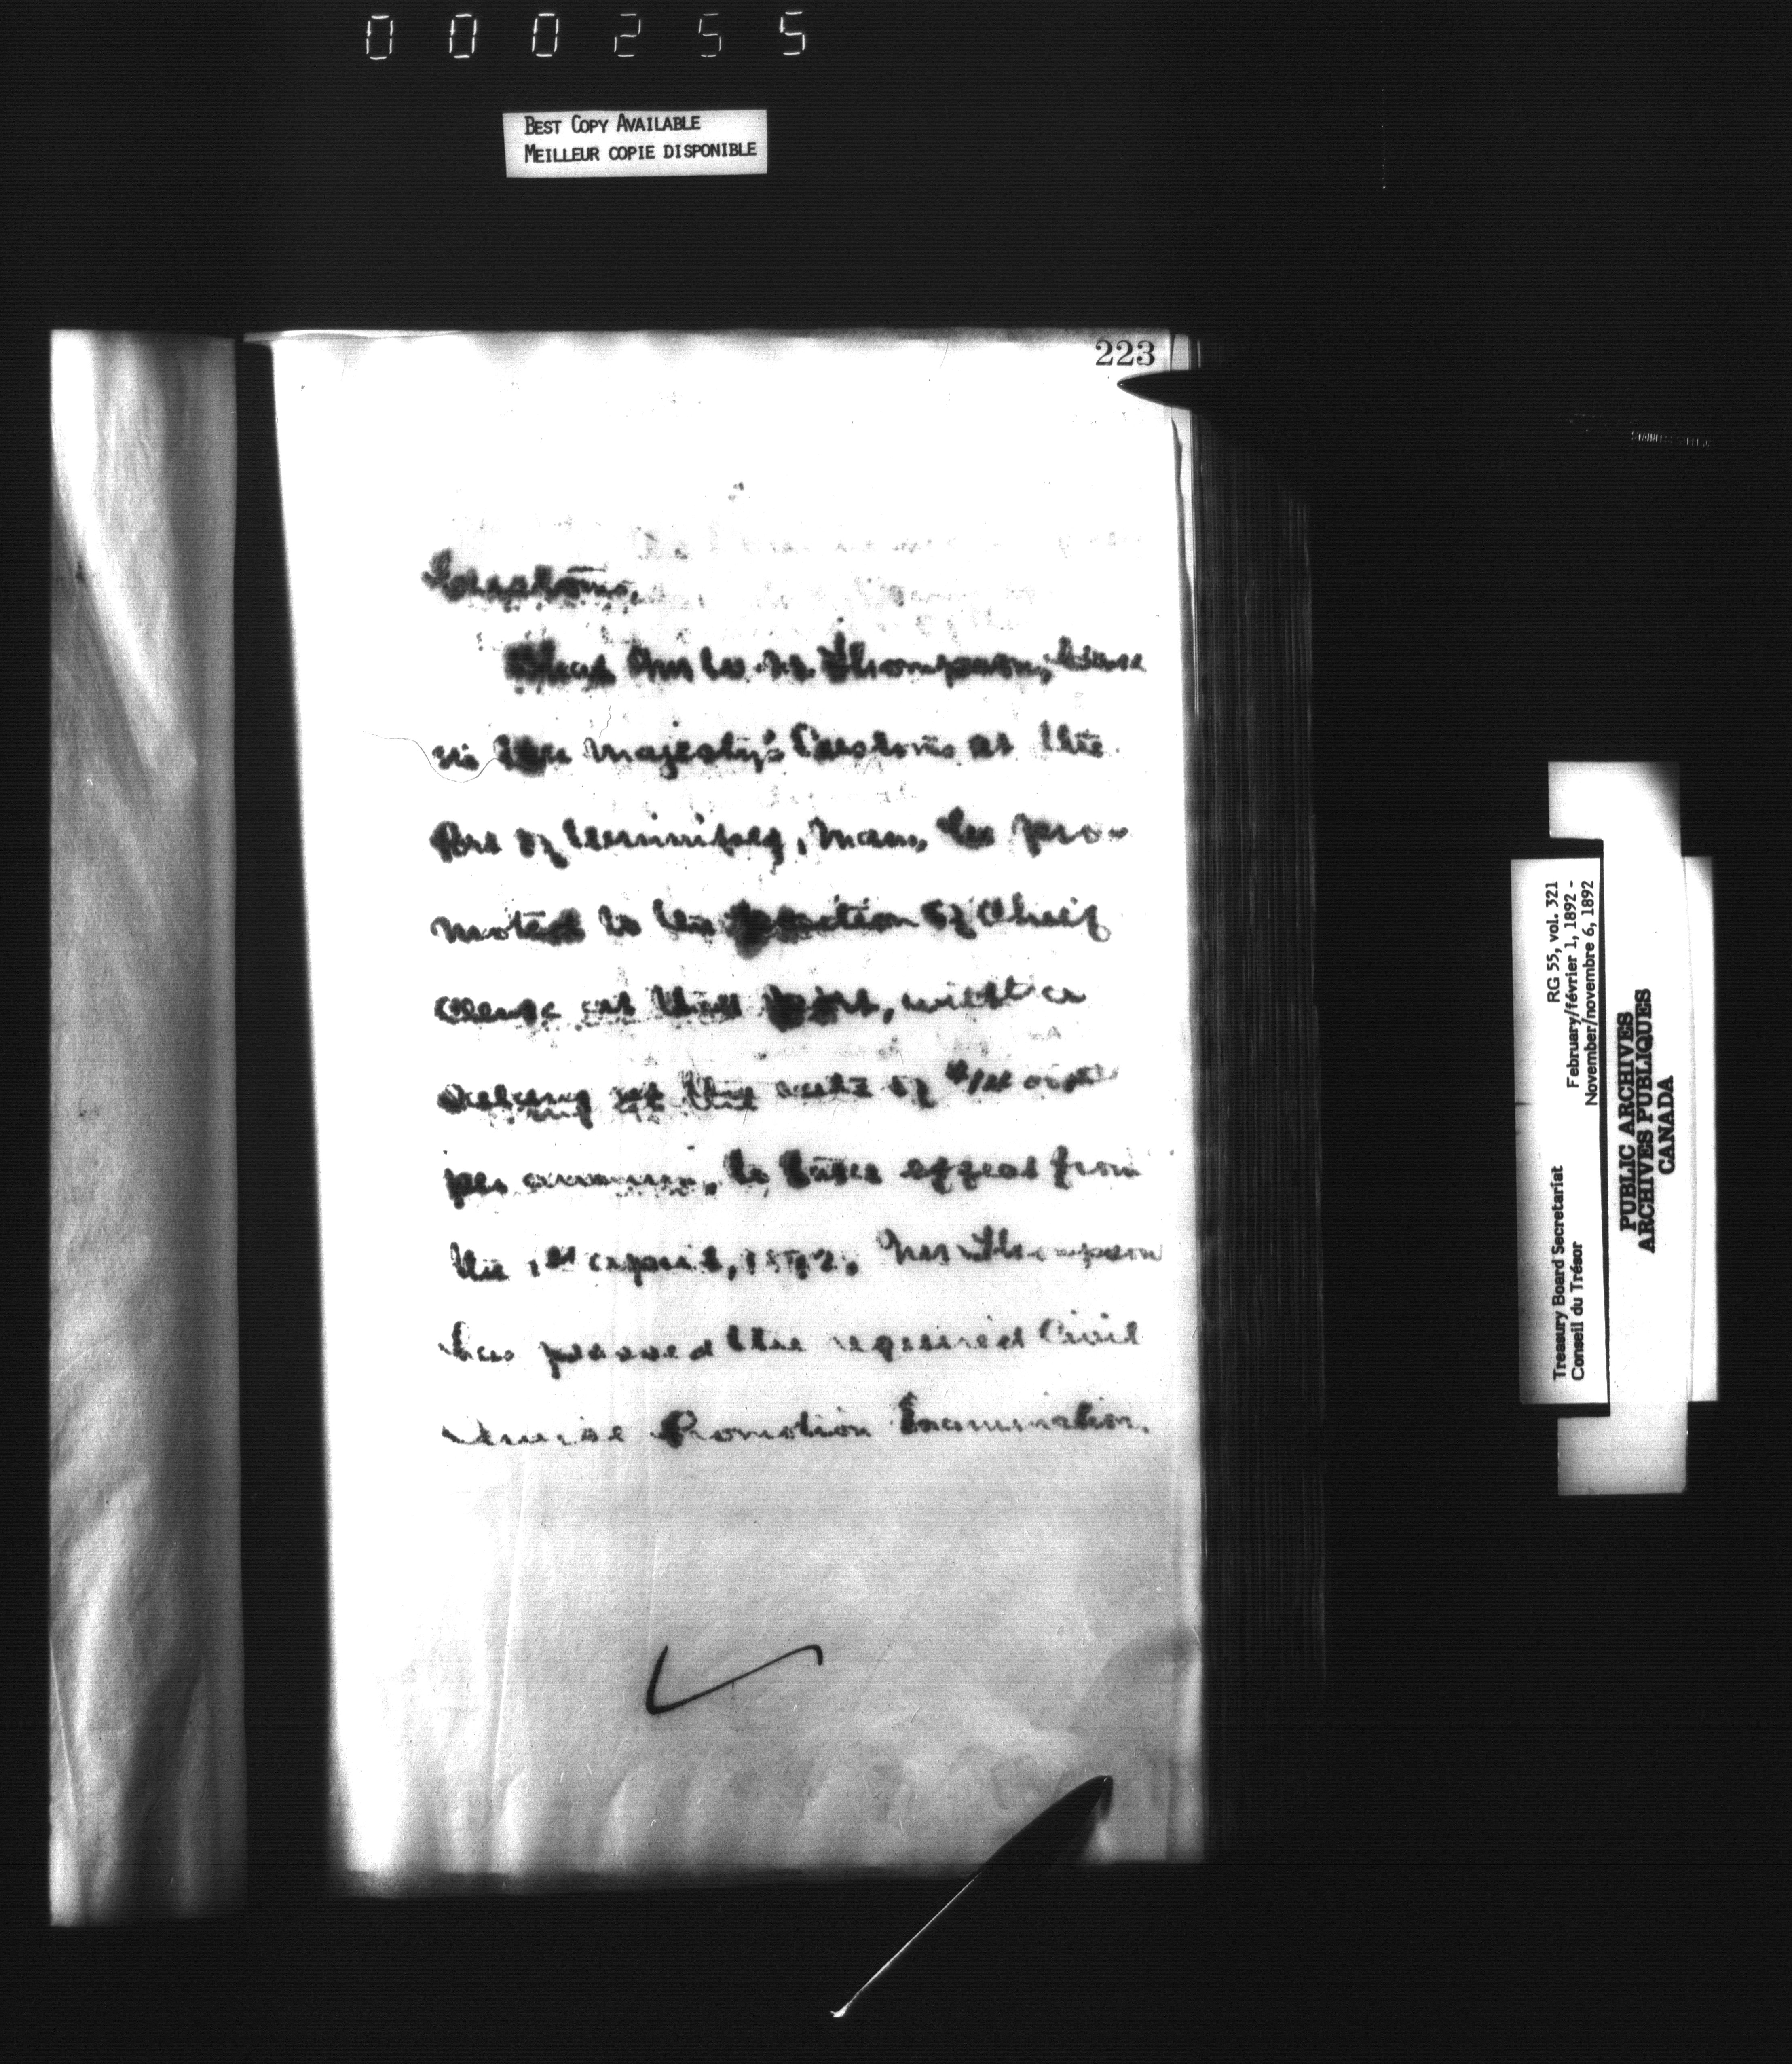 000255
BEST COPY AVAILABLE
MEILLEUR COPIE DISPONIBLE
223
Customs,
That Mr W. Thompson,
in Her Majesty's Customs at the
Port of Winnipeg, Man, be pro-
moted to the position of Chief
Clerk at that port, with a
salary at the rate of
per annum, to take effect from
the 1st April, 1892. Mr Thompson
has passed the required Civil
Service Promotion Examination.
Treasury Board Secretariat RG 55, vol. 321
Conseil du Trésor February/février 1, 1892 -
November/novembre 6, 1892
PUBLIC ARCHIVES
ARCHIVES PUBLIQUES
CANADA